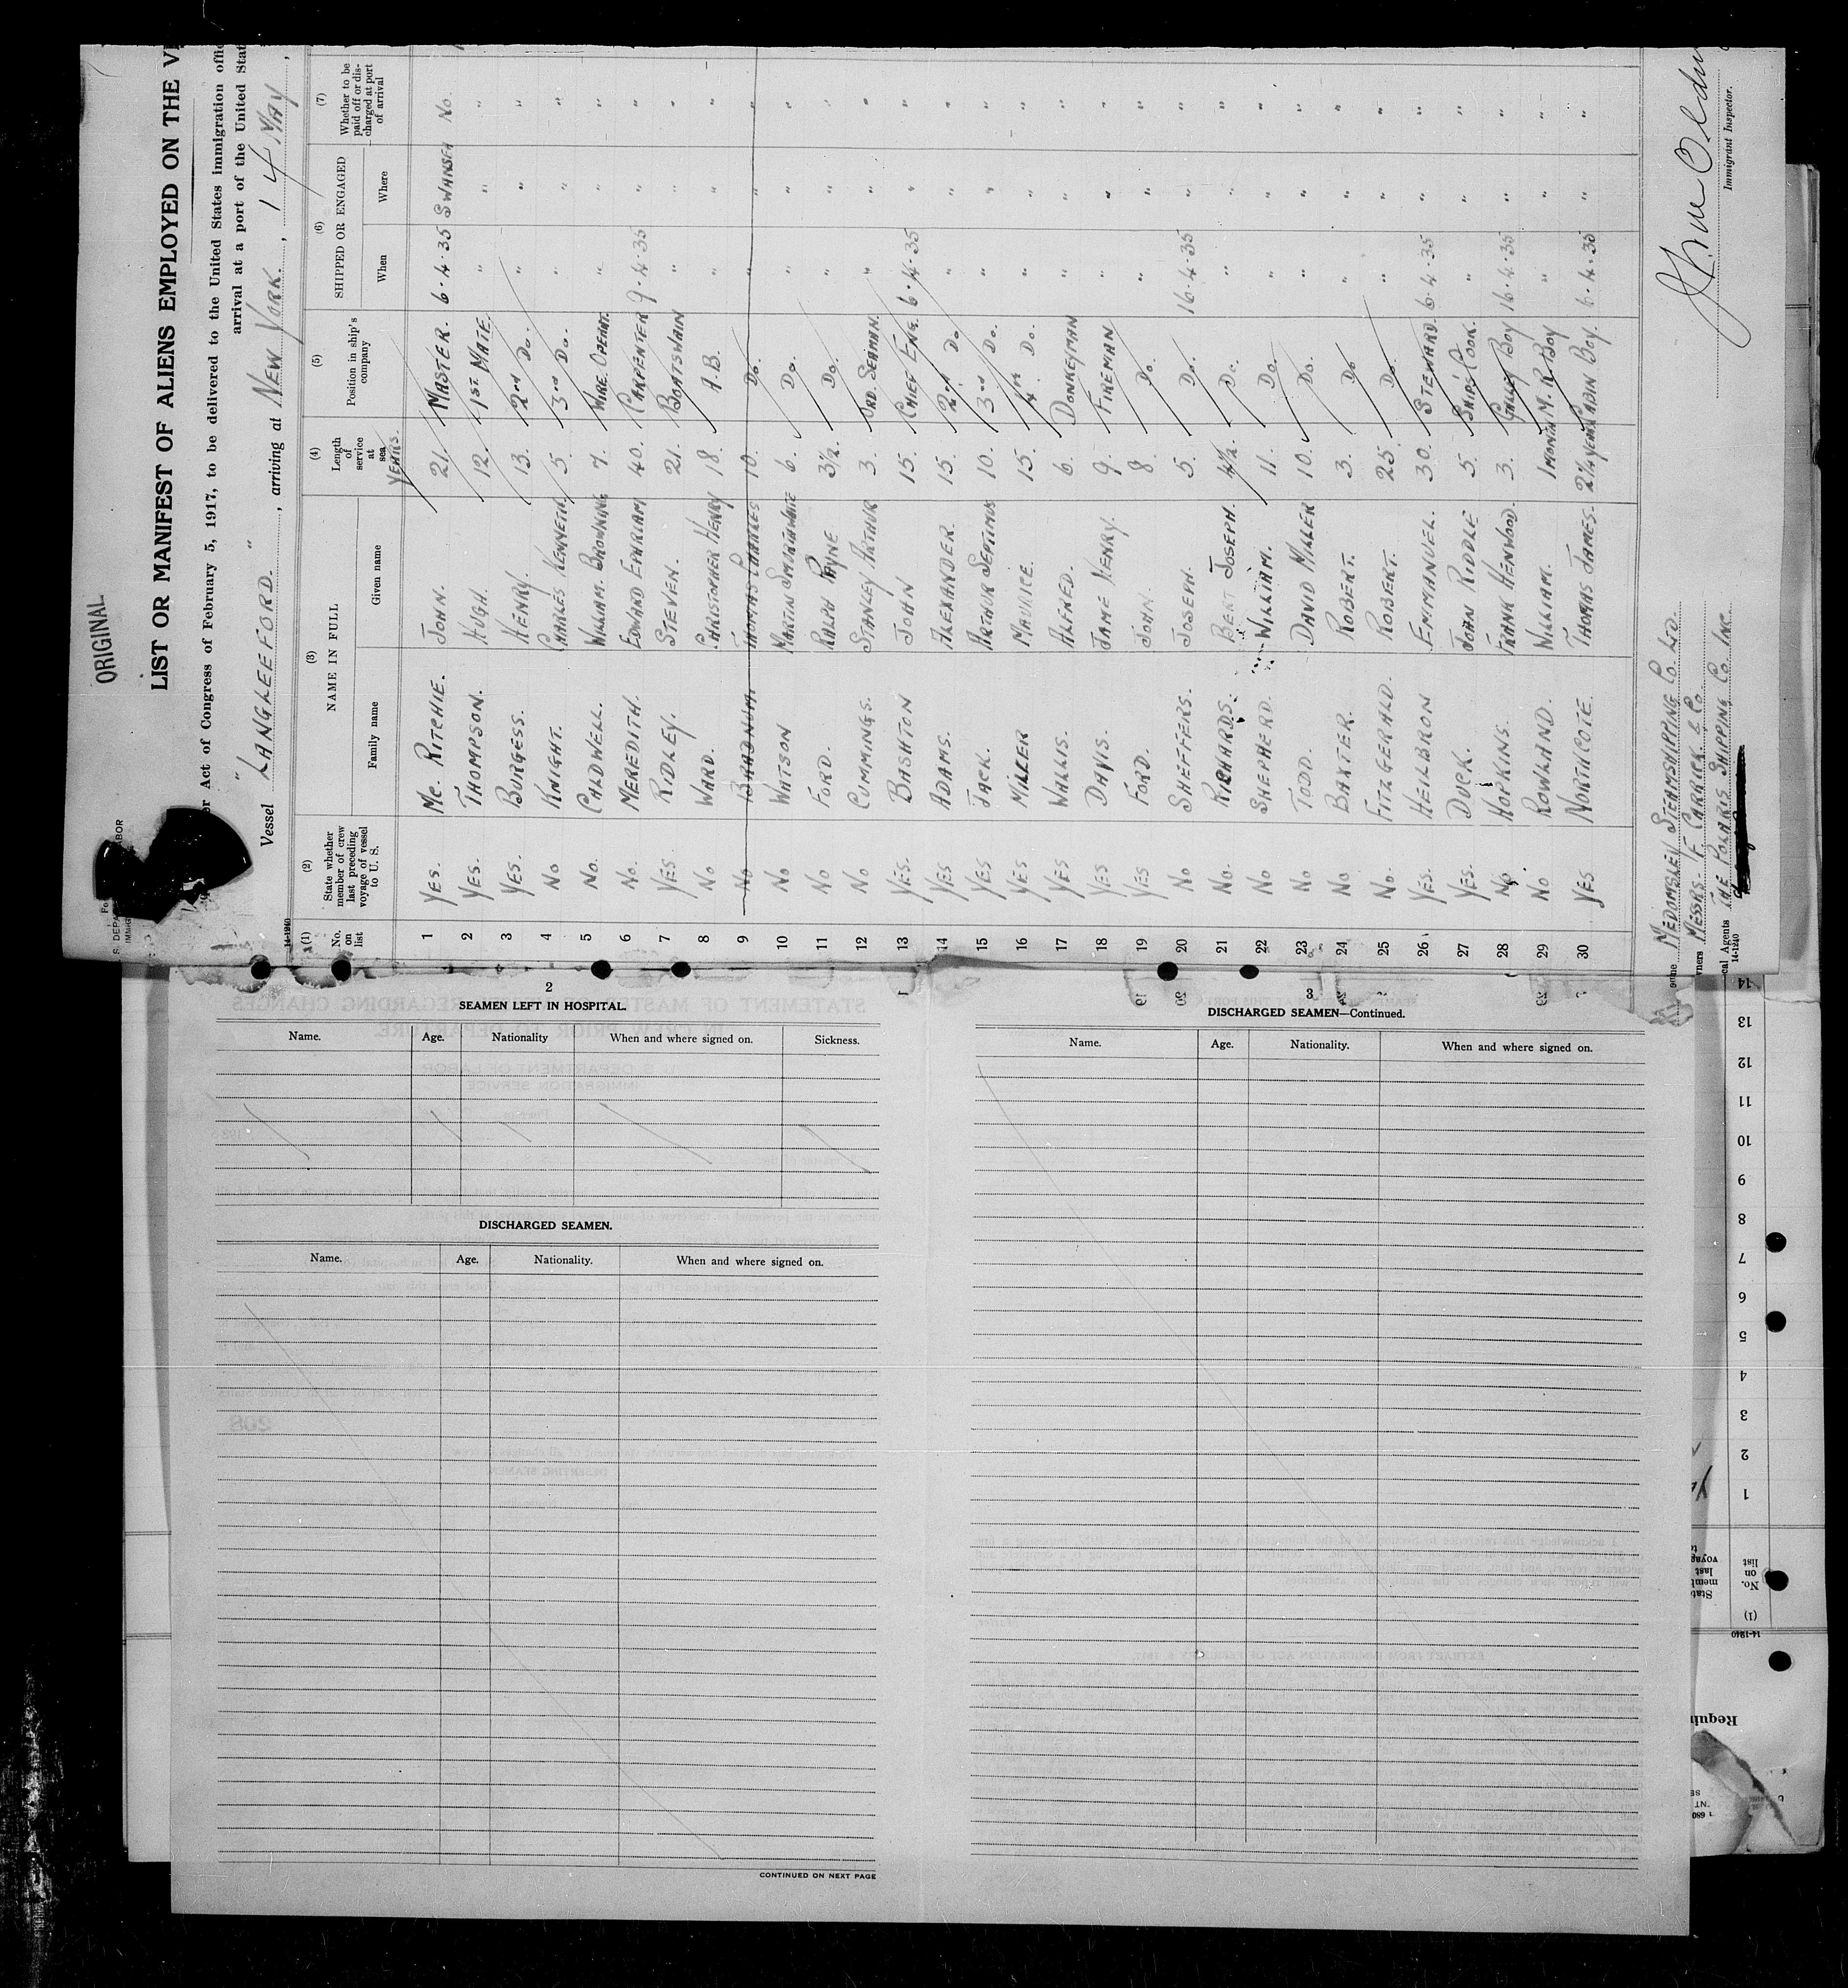 ORIGINAL
LIST OR MANIFEST OF ALIENS EMPLOYED ON THE
Act of Congress of February 5, 1917, to be delivered to the United States immigration
arrival at a port of the United
Vessel "LANGLEEFORD.", arriving at NEW YORK., 14 MAY,
14-1240
(1) (2) (3) (4) (5) (6) (7)
No. on list State whether member of crew last preceding voyage of vessel to U. S. NAME IN FULL Length of service at sea Position in ship's company SHIPPED OR ENGAGED Whether to be paid off or discharged at port of arrival
Family name Given name YEARS. When Where
1 YES. Mc. RITCHIE. JOHN. 21. MASTER. 6.4.35 SWANSEA No.
2 YES. THOMPSON. HUGH. 12. 1ST MATE. " " "
3 YES. BURGESS. HENRY. 13. 2nd Do. " " "
4 No KNIGHT. CHARLES KENNETH. 5. 3rd Do. " " "
5 No. CALDWELL. WILLIAM BROWNING 7. WIRE. OPERAT. " " "
6 No. MEREDITH. EDWARD EPHRIAM 40. CARPENTER 9.4.35 " "
7 YES RIDLEY. STEVEN. 21. BOATSWAIN " " "
8 No WARD. CHRISTOPHER HENRY 18. A.B. " " "
9 No BRABNUM THOMAS CHARLES 10. Do. " " "
10 No WATSON MARTIN SMURTHWAITE 6. Do. " " "
11 No FORD. RALPH PAYNE 3½. Do. " " "
12 No CUMMINGS. STANLEY ARTHUR 3. ORD. SEAMAN. " " "
13 YES. BASHTON JOHN 15. CHIEF ENG. 6.4.35 " "
14 YES ADAMS. ALEXANDER. 15. 2nd Do " " "
15 YES JACK. ARTHUR SEPTIMUS 10. 3rd Do. " " "
16 YES MILLER MAURICE. 15. 4TH Do. " " "
17 YES WALLIS. ALFRED. 6. DONKEYMAN " " "
18 YES DAVIS. JAME HENRY. 9. FIREMAN " " "
19 YES FORD. JOHN. 8. Do. " " "
20 No SHEFFERS. JOSEPH. 5. Do. 16.4.35 " "
21 No. RICHARDS. BERT JOSEPH. 4½. Do. " " "
22 No SHEPHERD. WILLIAM. 11. Do. " " "
23 No TODD. DAVID MILLER 10. Do. " " "
24 No BAXTER. ROBERT. 3. Do " " "
25 No. FITZGERALD. ROBERT. 25 Do. " " "
26 YES. HEILBRON EMMANUEL. 30. STEWARD. 6.4.35 " "
27 YES. DUCK. JOHN RIDDLE 5. SHIPS COOK. " " "
28 No HOPKINS. FRANK HENWOOD. 3. GALLEY BOY 16.4.35 " "
29 No ROWLAND. WILLIAM. 1 MONTH M. R. BOY " " "
30 YES NORTHCOTE. THOMAS JAMES. 2¼ YEARS CABIN BOY. 6.4.35 " "
MEDOMSLEY STEAMSHIPPING Co. LTD.
MESSRS F CARRICK & Co
Agents THE POLARIS SHIPPING Co INC.
14-1240
Immigrant Inspector.
2
SEAMEN LEFT IN HOSPITAL.
Name. Age. Nationality When and where signed on. Sickness.
DISCHARGED SEAMEN.
Name. Age. Nationality. When and where signed on.
CONTINUED ON NEXT PAGE
3
DISCHARGED SEAMEN—Continued.
Name. Age. Nationality. When and where signed on.
14
13
12
11
10
9
8
7
6
5
4
3
2
1
No. on list
(1)
14-1240